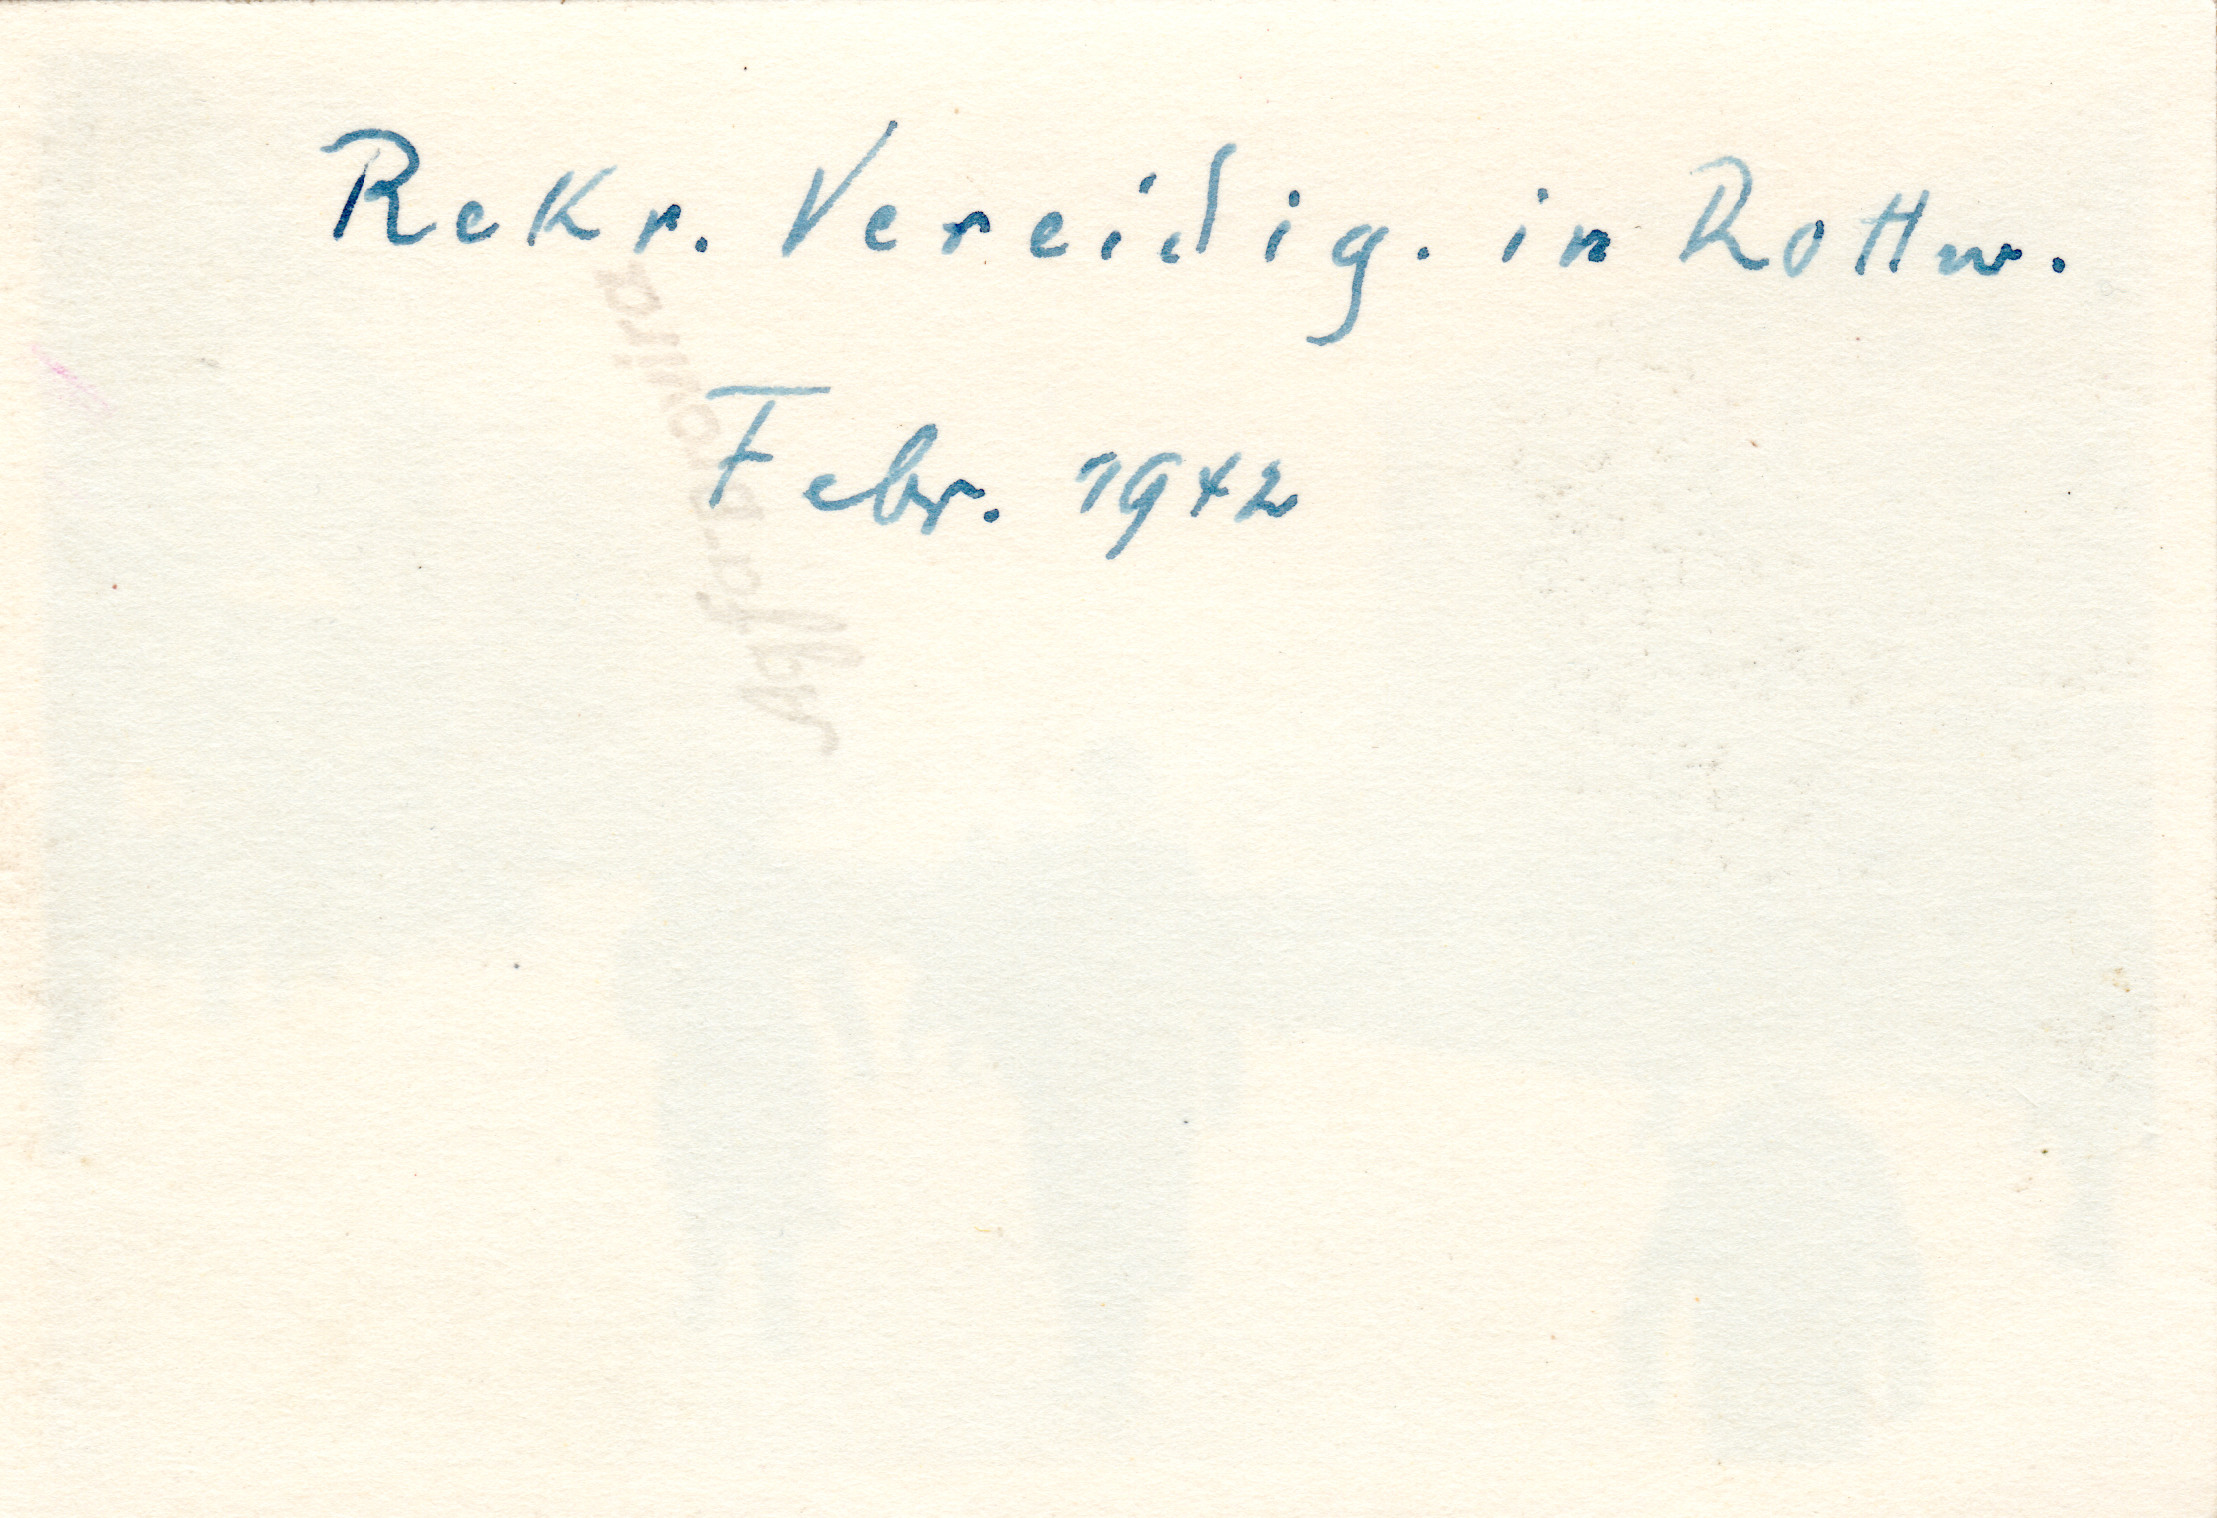 Rekr. Vereidig. in Rottw.
Febr. 1942
Agfa-Brovira